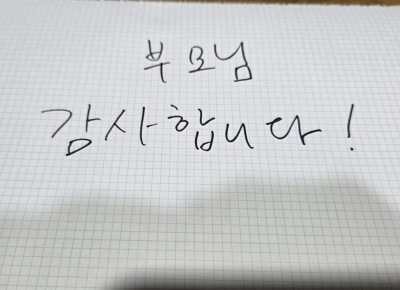 부모님
감사합니다!